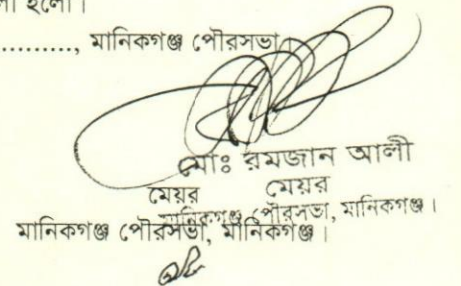 হলো।
..........., মানিকগঞ্জ পৌরসভা
মোঃ রমজান আলী
মেয়র মেয়র
মানিকগঞ্জ পৌরসভা, মানিকগঞ্জ।
মানিকগঞ্জ পৌরসভা, মানিকগঞ্জ।